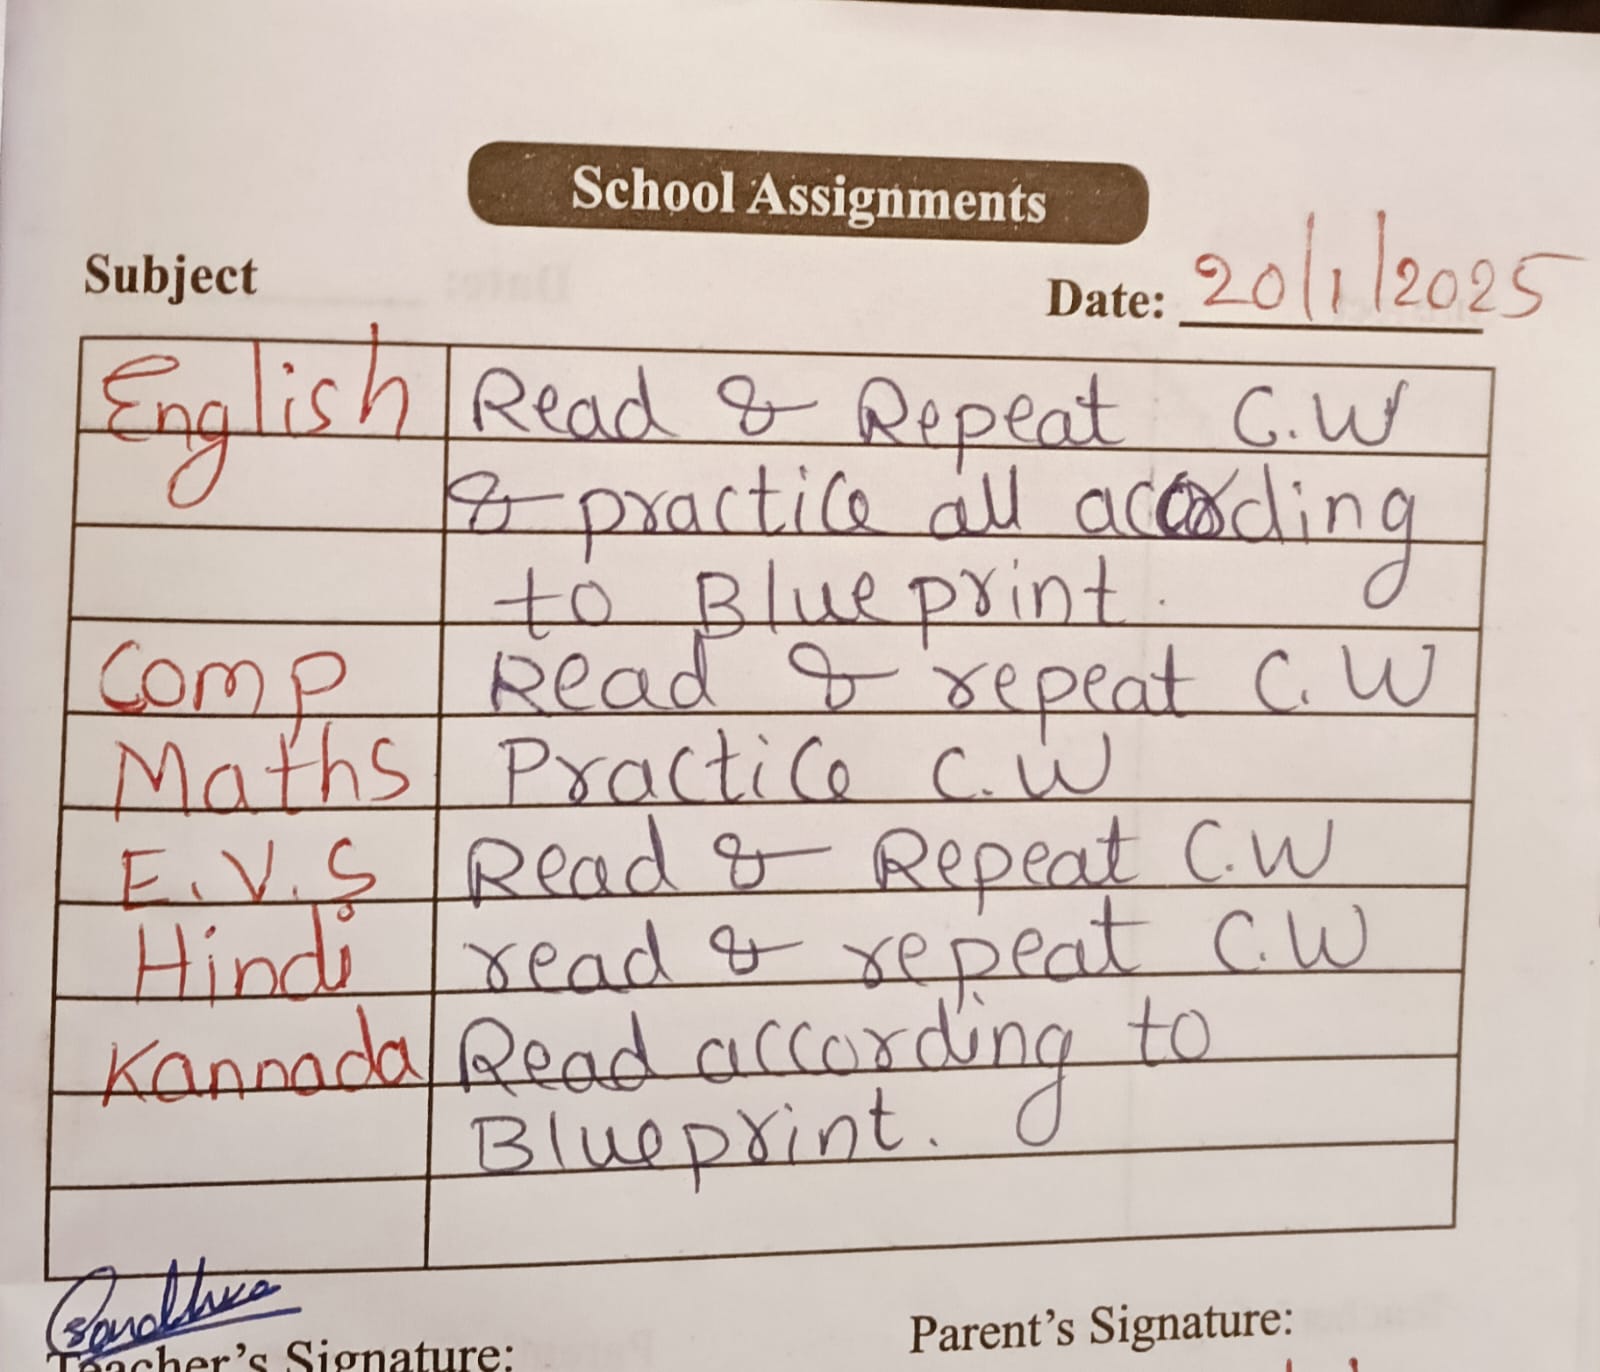 School Assignments
Subject Date: 20/1/2025
English Read & Repeat C.W
& practice all according
to Blueprint.
Comp Read & repeat C.W
Maths Practice C.W
E.V.S Read & Repeat C.W
Hindi read & repeat C.W
Kannada Read according to
Blueprint.
Teacher's Signature: Parent's Signature: